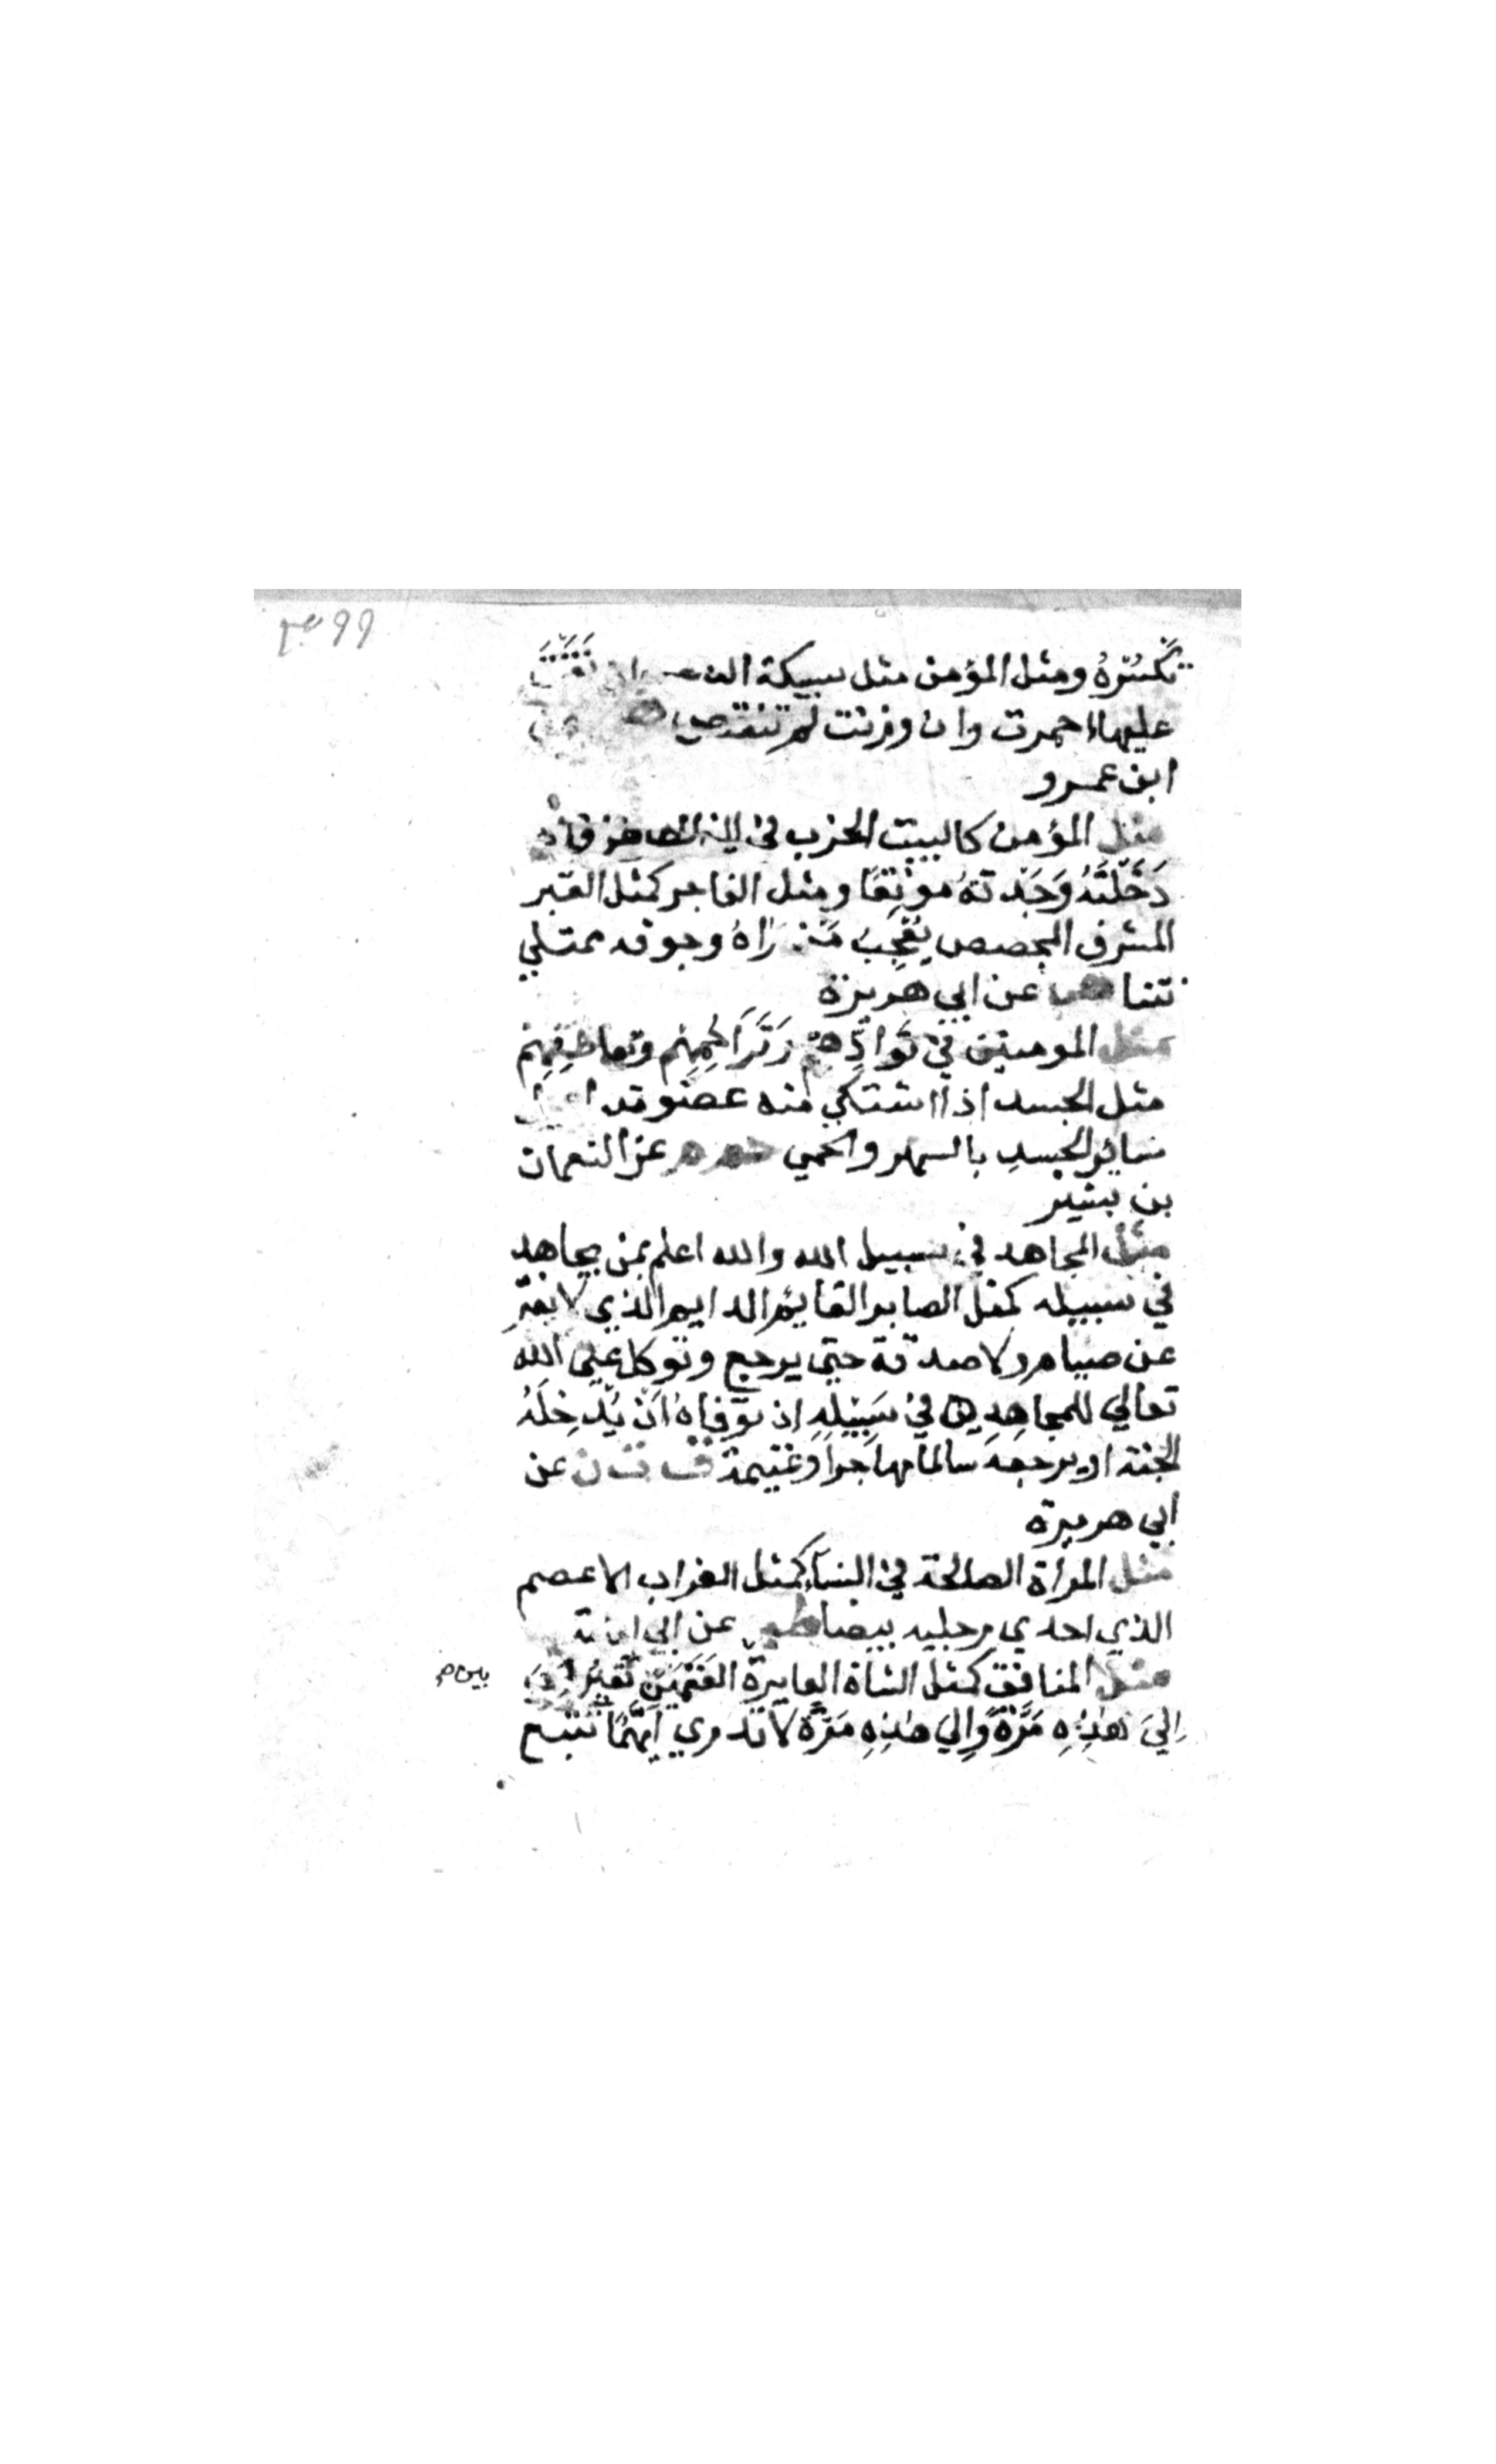 تَكْسُرْهُ ومثل المؤمن مثل سبيكة الذهب ان نَفَخْتَ
عليها احمرت وان وزنت لم تنقص هب عن
ابن عمرو
مثل المؤمن كالبيت الخرب في الظاهر فاذا
دَخَلْتَهُ وَجَدْتَهُ مونِقًا ومثل الفاجر كمثل القبر
المشرف المجصص يُعْجِبُ مَنْ رَاهُ وجوفه ممتلي
نتنا هب عن ابي هريرة
مثل المومنين في تَوَادِّهِمْ وَتَرَاحُمِهِم وتعاطفِهِم
مثل الجسد اذا اشتكي منه عضو تداعي
سائر الجسدِ بالسهر والحمي حم م عن النعمان
بن بشير
مثل المجاهد في سبيل الله والله اعلم بمن يجاهد
في سبيله كمثل الصايم القايم الدايم الذي لا يفتر
عن صيام ولا صدقة حتي يرجع وتوكل علي الله
تعالي للمجاهِدِين في سَبِيْلِهِ ان توفاهُ اَنْ يُدْخِلَهُ
الجنة او يرجعه سالما مع اجر او غنيمة ق ت ن عن
ابي هريرة
مثل المراة الصالحة في النساء كمثل الغراب الاعصم
الذي احدي رجليه بيضا طب عن ابي امامة
مثل المنافق كمثل الشاة العايرة الغَنَمَيْنِ تَعِيْرُ
بين صح
اِليَ هٰذِهِ مَرَّةً وَاِليَ هٰذِهِ مَرَّةً لا تدري اَيَّهُمَا تتبع